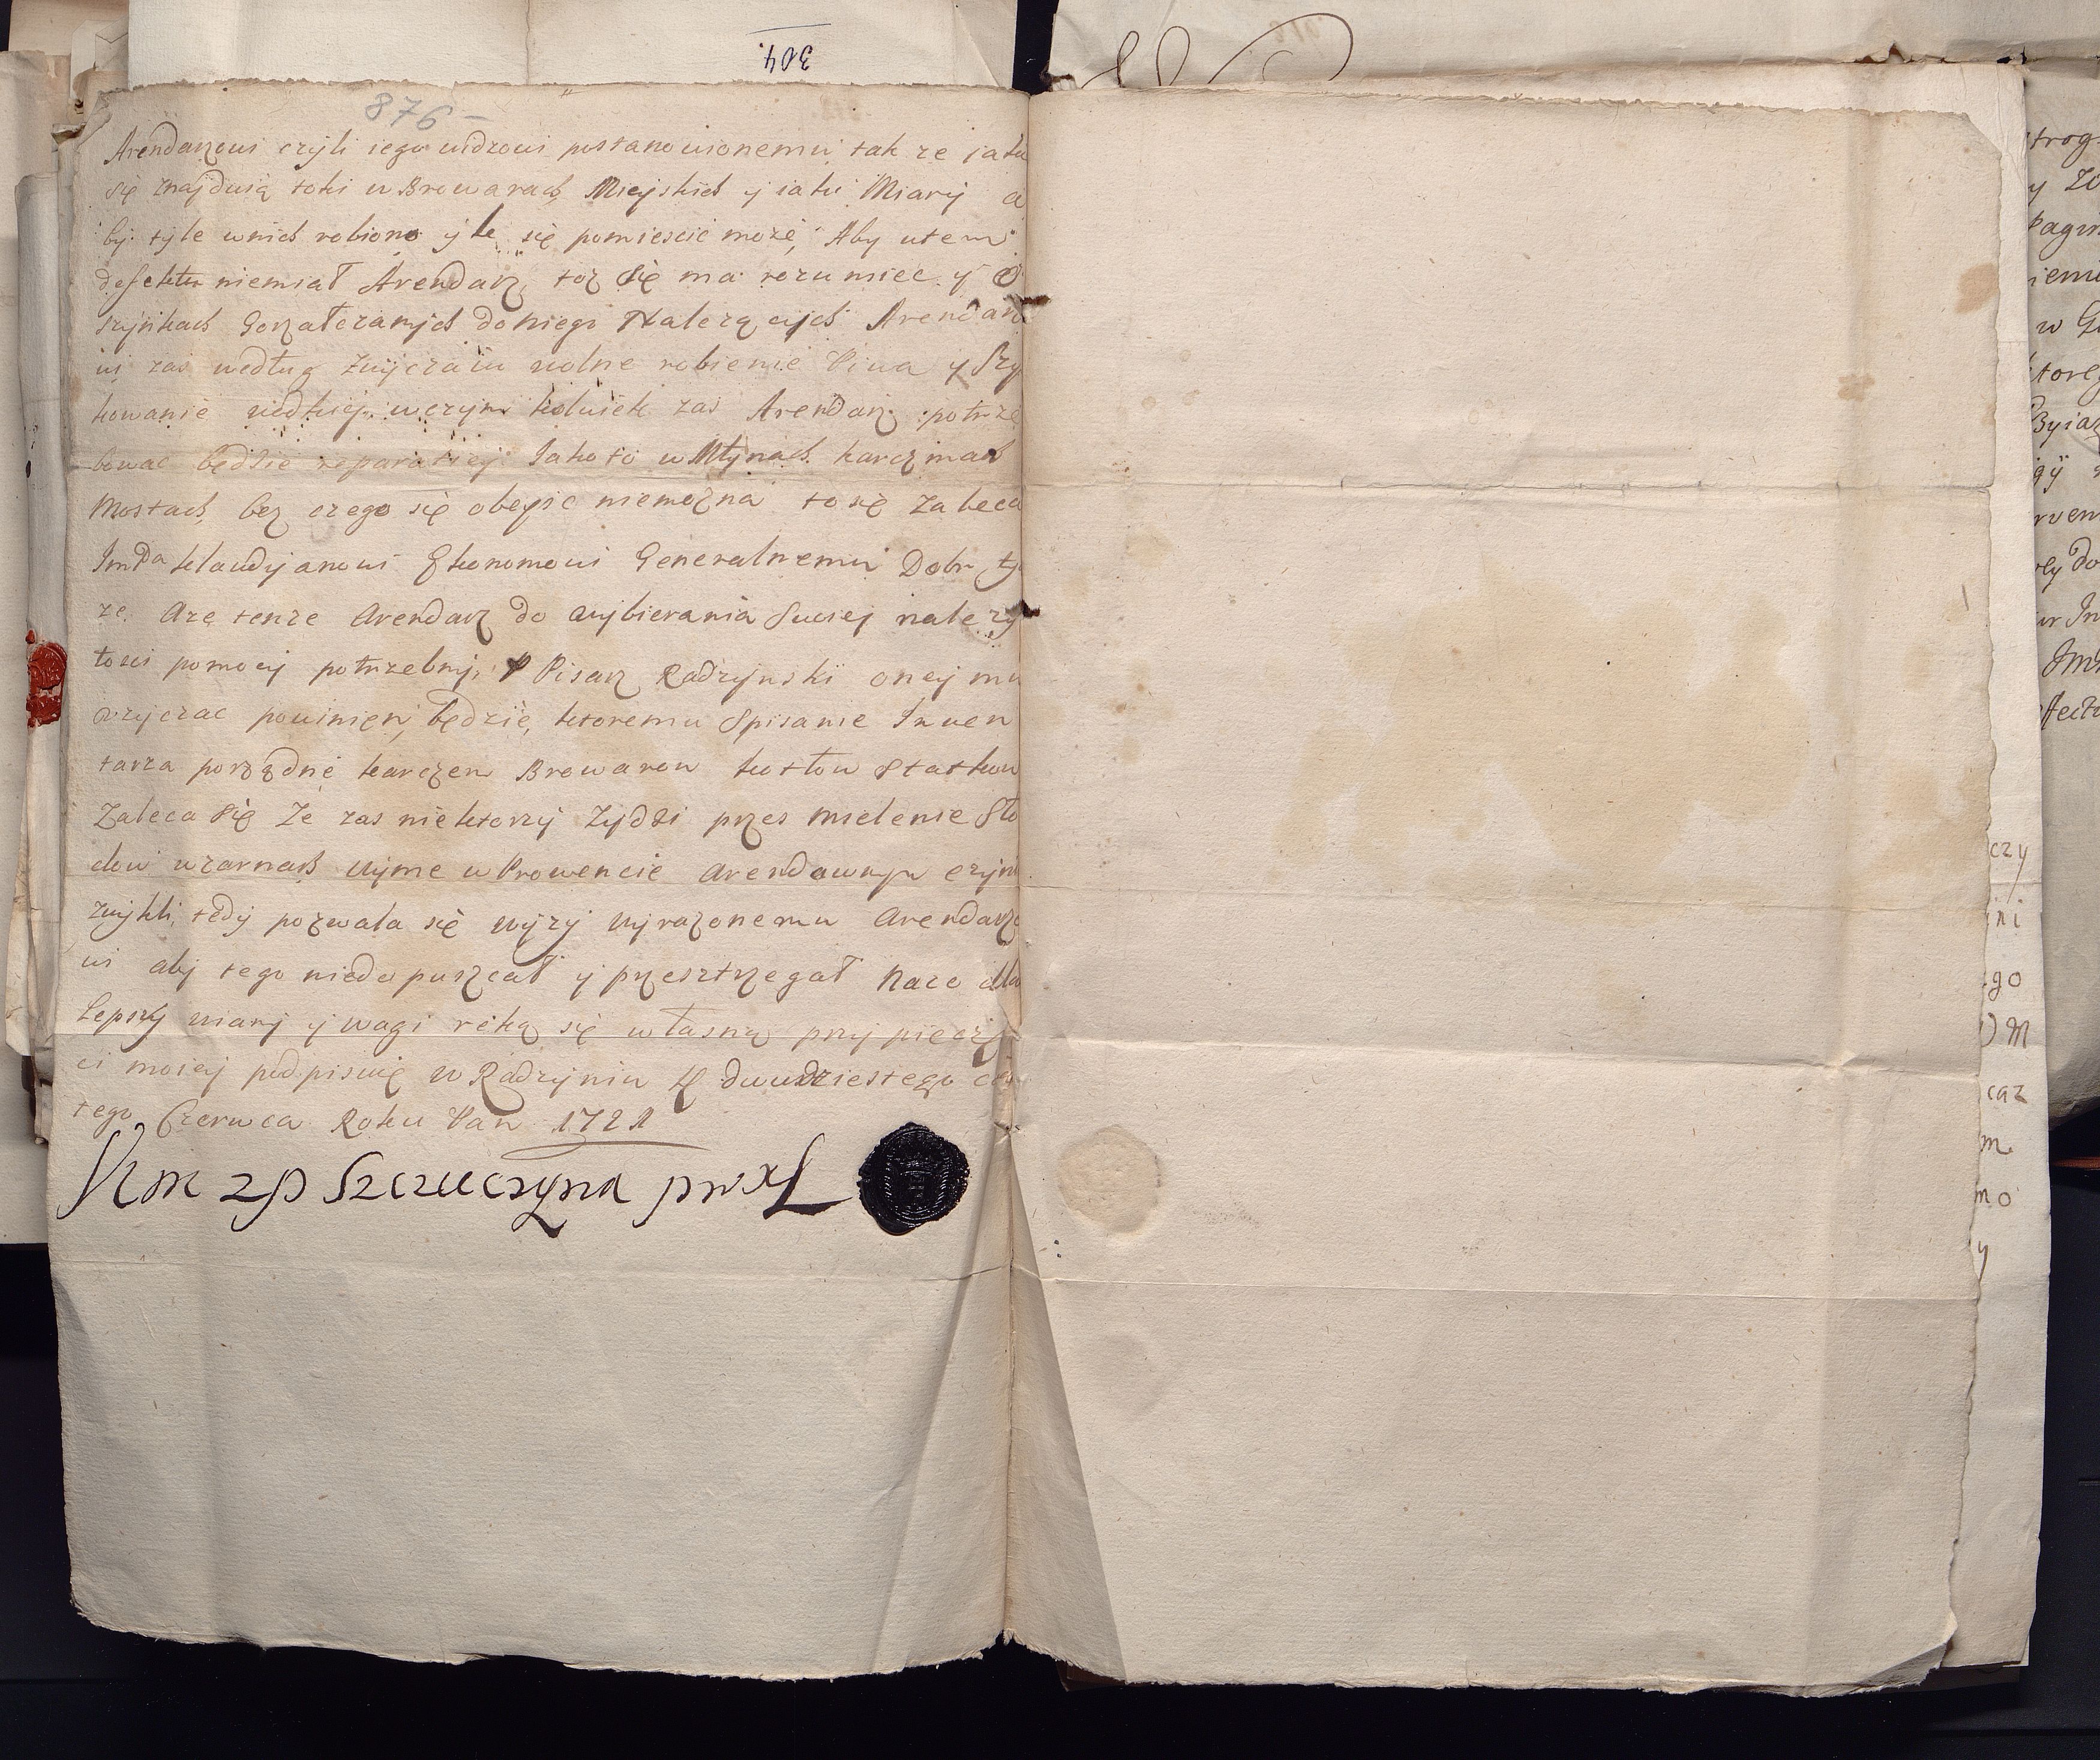 304.
876 –
Arendarzowi czyli iego widzowi postanowionemu tak ze iako
się znajduią toki w Browarach Mieyskich y iaki Miary a
by tyle wnich robiono yle się pomiescic może, Aby wtem
defektu niemiał Arendarz, toz się ma rozumiec y o
szynkach Gorzałczanych do niego Nalezących Arendarzo
wi zas według zwyczaiu wolne robienie Piwa y Szyn
kowanie wodkiey wczym kolwiek zas Arendarz potrze
bowac będzie reparaciey Iako to w Młynach karczmach
Mostach, bez czego się obeyść niemożna to się Zaleca
Jmć Pa Klaudyanowi Ekonomowi Generalnemu Dobr ty
ze. Aze tenze Arendarz do wybierania Swiey nalezy
tosci pomocy potrzebny, Pisarz Radzynski oney mu
uzyczac powinien będzie, ktoremu Spisanie Inwen
tarza porządne karczem Browarow kotłow Statkow
Zaleca się Ze zas niektorzy Zydzi przes mielenie Sło
dow wzarnach uyme w Prowencie Arendownym czyni
zwykli, tedy pozwala się wyzy wyrazonemu Arendarzo
wi aby tego niedopuszcał y przestrzegał Naco dla
Lepszy wiary y wagi ręką się własną przy pieczę
ci moiey podpisuię w Radzyniu D dwudziestego
tego Czerwca Roku Pan 1721
zP Szczuczyna